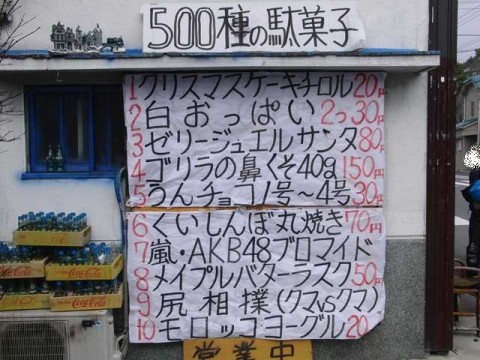 500種の駄菓子
1 クリスマスケーキチロル 20円
2 白おっぱい 2っ30円
3 ゼリージュエルサンタ 80円
4 ゴリラの鼻くそ40g 150円
5 うんチョコ1号〜4号 30円
6 くいしんぼ丸焼き 70円
7 嵐・AKB48ブロマイド
8 メイプルバターラスク 50円
9 尻相撲(クマvsクマ)
10 モロッコヨーグル 20
営業中
Coca-Cola
Coca-Cola